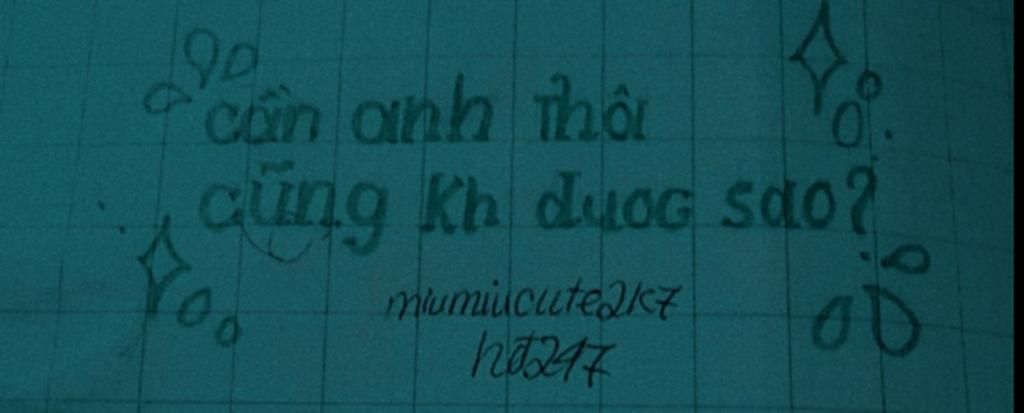 cần anh thôi
cũng kh duoc sao?
miumiucute2k7
hđ247